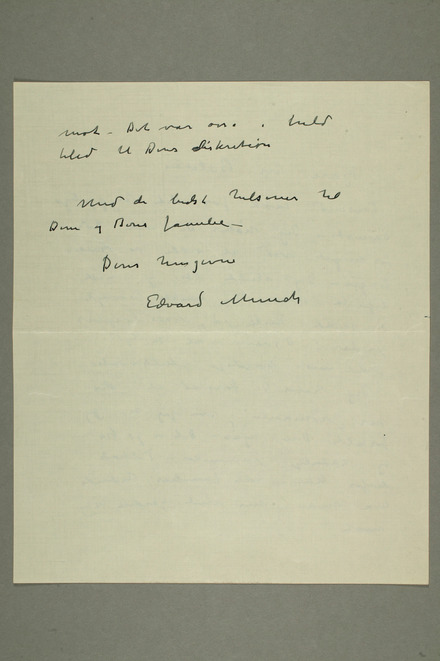 mot – Det var også i
blev til Deres diskretion
Med de bedste hilsener til
Dem og Deres familie –
Deres hengivne
Edvard Munch